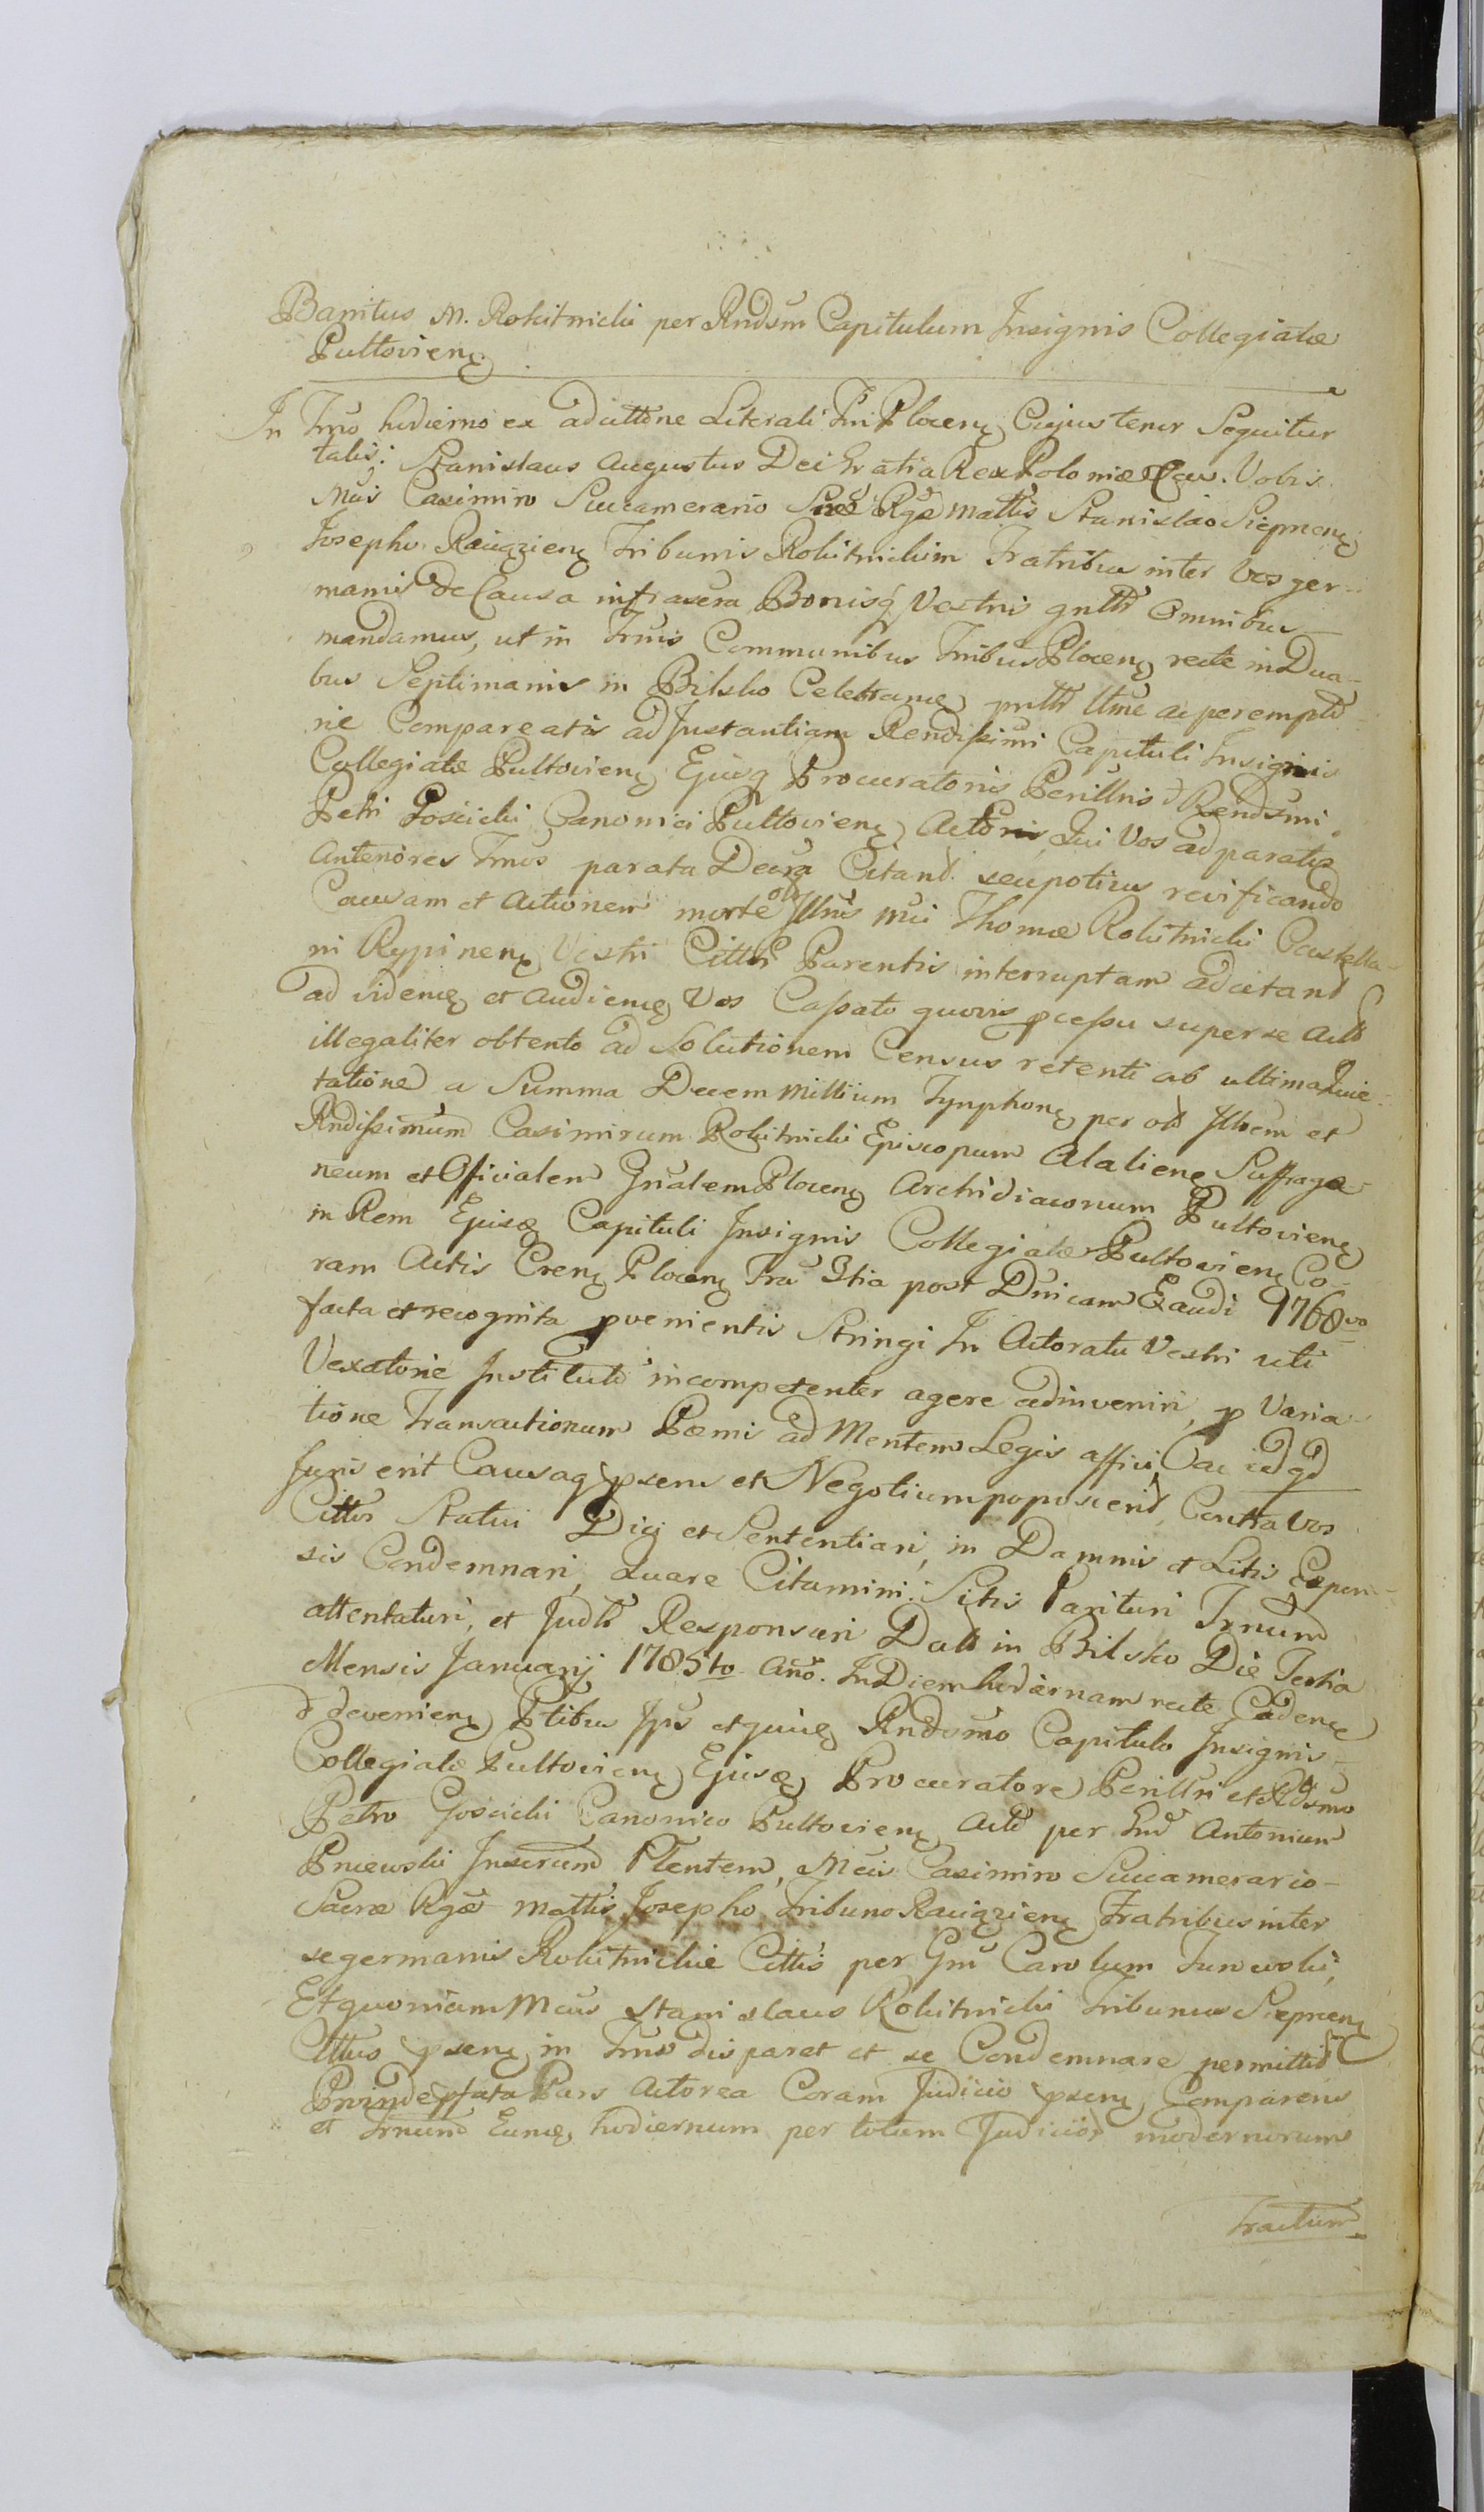 Banitus M. Rokitnicki per Rndsm Capitulum Insignis Collegiatæ
Pultovien.
In Trno hodierno ex adcittone Literali Tri Plocen. Cujus tenor Sequitur
talis: Stanislaus Augustus Dei Gratia Rex Poloniæ &c. Vobis
Mcis Casimiro Succamerario Sræ Rgæ Mattis Stanislao Sieprcen.
Josepho Raciązien. Tribunis Rokitnickim Fratribus inter Vos ger-
manis De Causa infrascra Bonisq Vestris gntti Omnibus
mandamus, ut in Trnis Communibus Tribus Plocen. recte in Dua-
bus Septimanis in Bilsko Celebran. pntti ltme ac perempto-
rie Compareatis ad Instantiam Rendissimi Capituli Insignis
Collegiatæ Pultovien. Ejusq Procuratoris Perillris Rendsmi
Petri Gościcki Canonici Pultovien. Actoris Qui Vos ad paratas
Anteriores Trnos parata Decra Citand. seu potius revificando
Causam et Actionem morte olim Illris Mci Thomæ Rokitnicki Castella-
ni Rypinen. Vestri Citti Parentis interruptam adcitand
ad Viden. et Audien. Vos Cassato quovis pcessu super se Acto
illegaliter obtento ad Solutionem Census retenti ab ultima Quie-
tatione a Summa Decem Millium Tynphon. per olim Illrem et
Rndissimum Casimirum Rokitnicki Episcopum Alalien. Suffraga-
neum et Officialem Gnalem Plocen. Archidiaconum Pultovien.
in Rem Ejusd Capituli Insignis Collegiatæ Pultovien. Co-
ram Actis Cren. Plocen. Fra 3tia post Dnicam Exaudi 1768vo
facta et recognita pvenientis Stringi In Actoratu Vestri uti
Vexatorie Instituto incompetenter agere adinveniri, p Varia-
tione Transactionum Pœnis ad Mentem Legis affici ac id qd
Juris erit Causaq psens et Negotium poposcerit, Contra Vos
Cittos Statui Dici et Sententiari, in Damnis et Litis Expen-
sis Condemnari, Quare Citamini. Sitis Parituri Trnum
attentaturi, et Judti Responsuri Datt in Bilsko Die Tertia
Mensis Januarij 1785to Ano. In Diem hodiernam recte Caden.
devenien. Ptibus Ipis et quing Rndsmo Capitulo Insignis
Collegiatæ Pultovien. Ejusq Procuratore Perillri et Rdsmo
Petro Gościcki Canonico Pultovien. Acto per Gnd Antonium
Pniewski Juscrum Plentem, Mcis Casimiro Succamerario
Sacræ Rgæ Mattis Josepho Tribuno Raciązien. Fratribus inter
se germanis Rokitnickie Cittis per Gm Carolum Turowski,
Et quoniam Mcus Stanislaus Rokitnicki Tribunus Sieprcen.
Cittus psens in Trno disparet et se Condemnare permittit
Proinde pfata Pars Actorea Coram Judicio psen. Comparens
et Trnum Eun. hodiernum per totum Judicior modernorum
Tractum